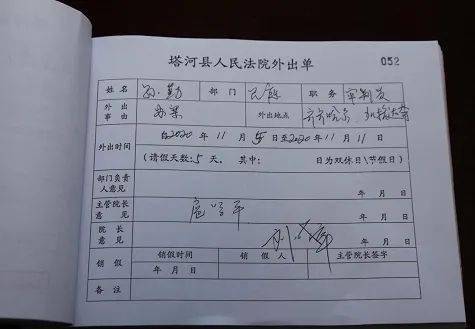 塔河县人民法院外出单 052
姓名 孙勤 部门 职务 审判员
外出事由 办案 外出地点 齐齐哈尔
外出时间 自2020年11月5日至2020年11月11日
(请假天数:5天。其中: 日为双休日\节假日)
部门负责人意见 年 月 日
主管院长意见 年 月 日
院长意见 年 月 日
销假 销假时间 销假人 主管院长签字
年 月 日
备注